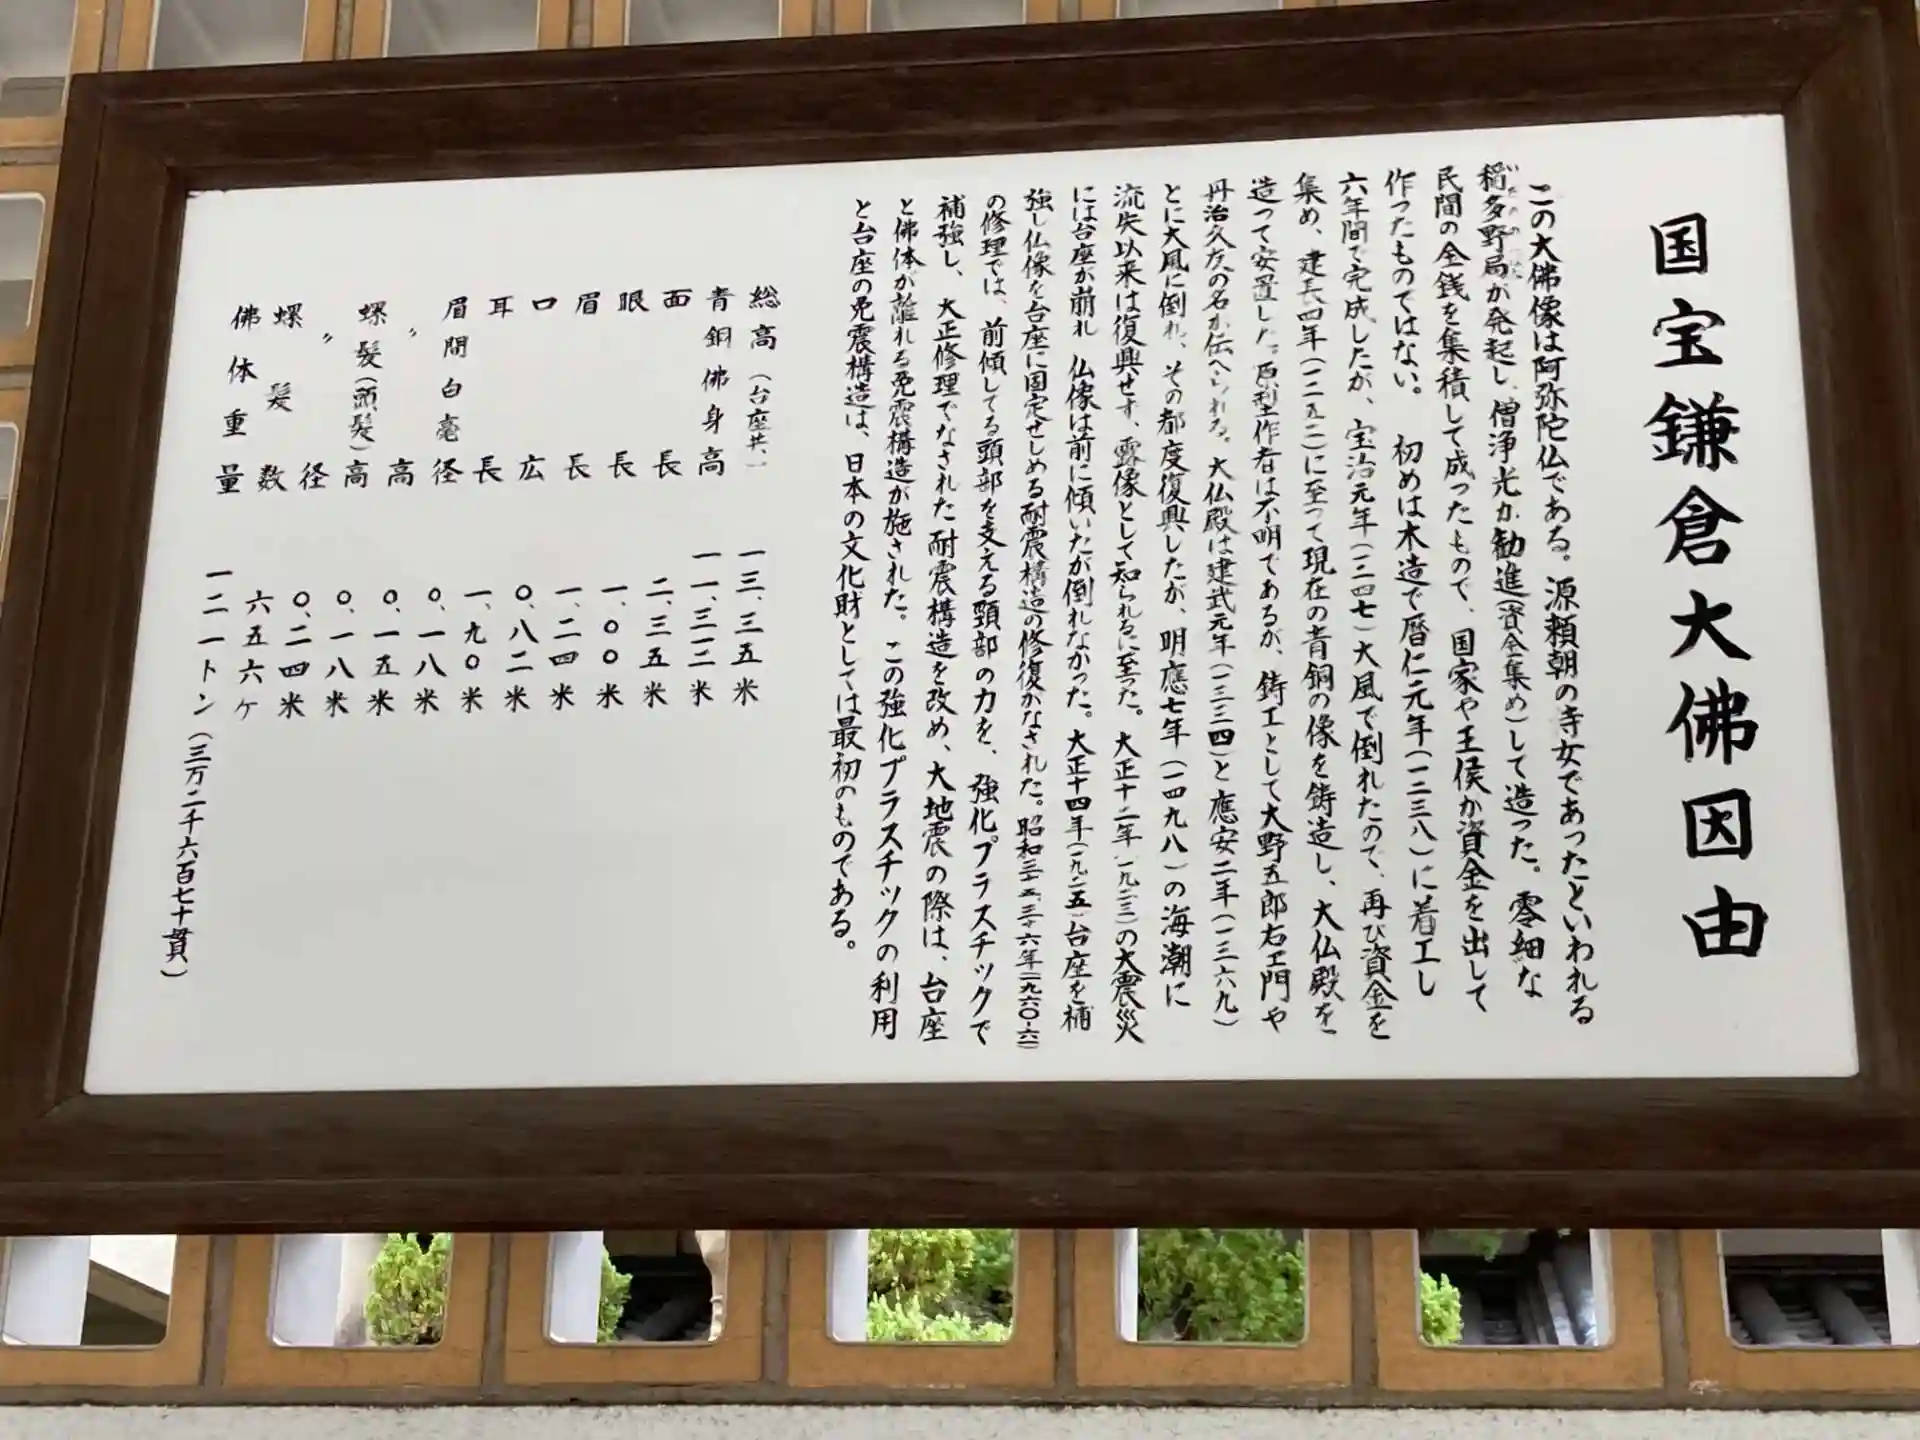 国宝鎌倉大佛因由
この大佛像は阿弥陀仏である。源頼朝の寺女であったといわれる
稲多野局が発起し、僧浄光が勧進(資金集め)して造った。零細な
民間の金銭を集積して成ったもので、国家や王侯が資金を出して
作ったものではない。初めは木造で暦仁元年(一二三八)に着工し
六年間で完成したが、宝治元年(一二四七)大風で倒れたので、再び資金を
集め、建長四年(一二五二)に至って現在の青銅の像を鋳造し、大仏殿を
造って安置した。原型作者は不明であるが、鋳工として大野五郎右エ門や
丹治久友の名が伝へられる。大仏殿は建武元年(一三三四)と應安二年(一三六九)
とに大風に倒れ、その都度復興したが、明應七年(一四九八)の海潮に
流失以来は復興せず、露像として知られるに至った。大正十二年(一九二三)の大震災
には台座が崩れ 仏像は前に傾いたが倒れなかった。大正十四年(一九二五)台座を補
強し仏像を台座に固定せしめる耐震構造の修復がなされた。昭和三十五、三十六年(一九六〇-六一)
の修理では、前傾してる頭部を支える頸部の力を、強化プラスチックで
補強し、大正修理でなされた耐震構造を改め、大地震の際は、台座
と佛体が離れる免震構造が施された。この強化プラスチックの利用
と台座の免震構造は、日本の文化財としては最初のものである。
総高(台座共) 一三、三五米
青銅佛身高 一一、三一二米
面長 二、三五米
眼長 一、〇〇米
眉長 一、二四米
口広 〇、八二米
耳長 一、九〇米
眉間白毫径 〇、一八米
〃 高 〇、一五米
螺髪(頭髪)高 〇、一八米
〃 径 〇、二四米
螺髪数 六五六ケ
佛体重量 一二一トン(三万二千六百七十貫)